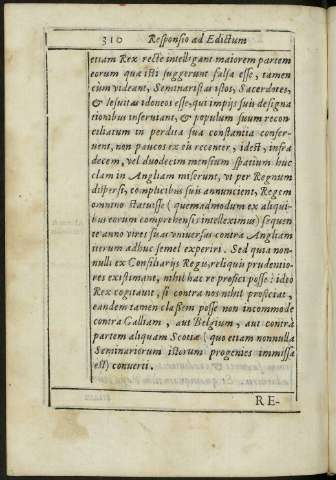 310 Responsio ad Edictum
etiam Rex recte intelligant maiorem partem
eorum quæ isti suggerunt falsa esse, tamen
cum videant, Seminaristas istos, Sacerdotes,
& Iesuitas idoneos esse, qui impijs suis designa
tionibus inseruiant, & populum suum recon
ciliatum in perdita sua constantia conser-
uent, non paucos ex eis recenter, idest, infra
decem, vel duodecim mensium spatium huc
clam in Angliam miserunt, vt per Regnum
dispersi, complicibus suis annuncient, Regem
omnino statuisse (quemadmodum ex aliqui-
bus eorum comprehensis intelleximus) sequen
te anno vires suas vniuersas contra Angliam
iterum adhuc semel experiri. Sed quia non-
nulli ex Consiliarijs Regijs, reliquis prudentio-
res existimant, nihil hac re profici posse: ideo
Rex cogitauit, si contra nos nihil proficiat,
eandem tamen classem posse non incommode
contra Galliam, aut Belgium, aut contra
partem aliquam Scotiæ (quo etiam nonnulla
Seminariorum istorum progenies immissa
est) conuerti.
RE-